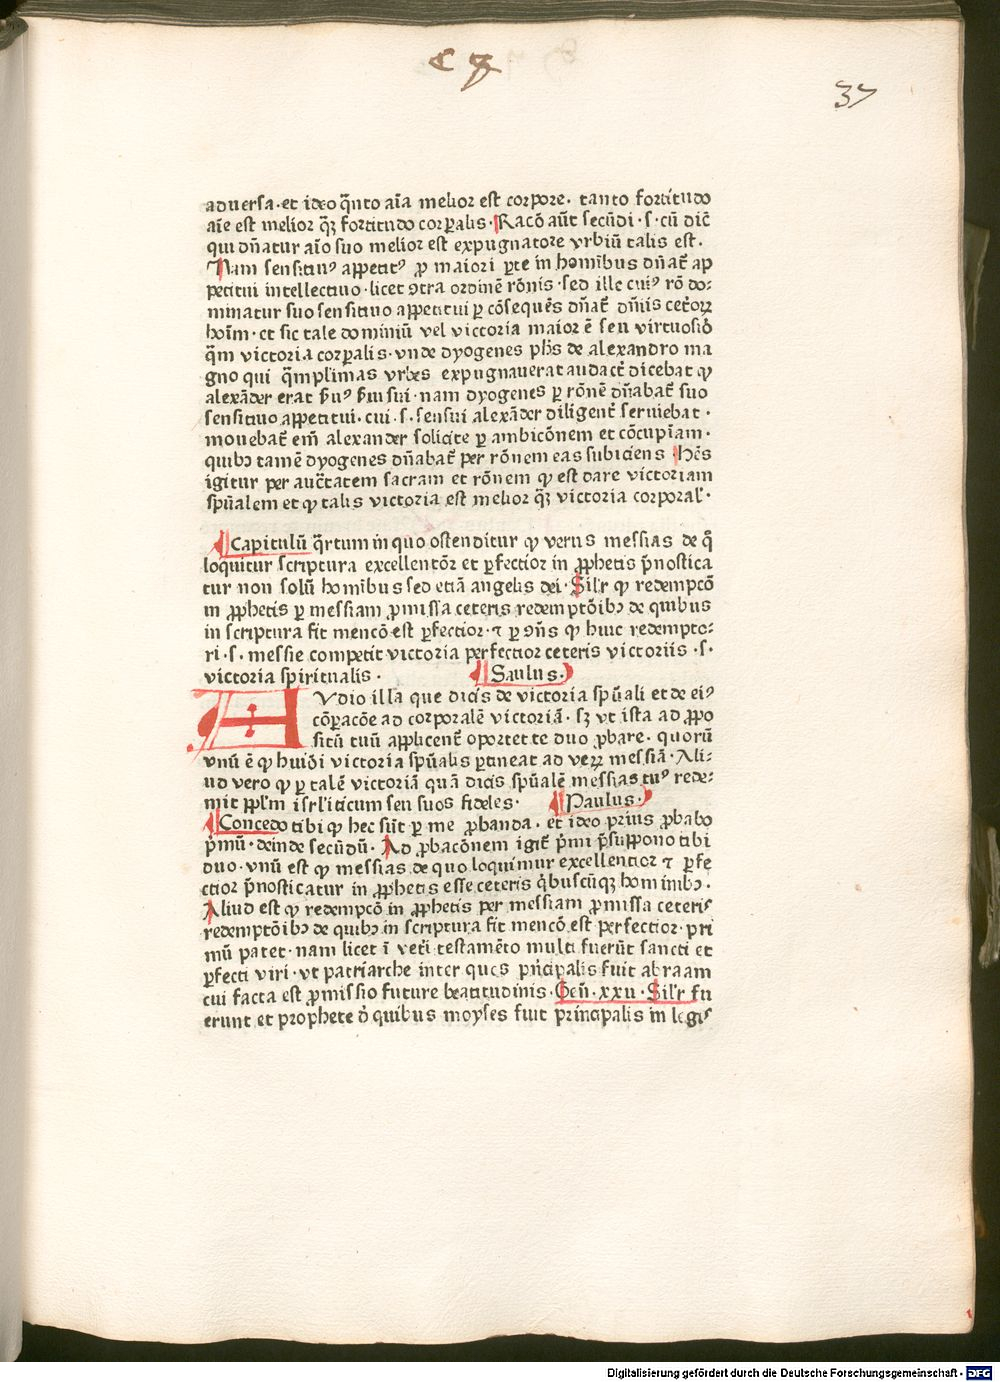 c 7
37
aduersa·et ideo q̄nto aīa melior est corpore· tanto fortitudo
aīe est melior q̄ꝫ fortitudo corꝑalis·Racō aūt secūdi·s·cū dic̄
qui dn̄atur aīo suo melior est expugnatore vrbiū talis est.
Nam sensitiuꝰ appetitꝰ ꝓ maiori ꝑte in homībus dn̄at̄ ap
petitui intellectiuo·licet ꝯtra ordinē rōnis·sed ille cuiꝰ rō do⸗
minatur suo sensitiuo appetitui ꝑ cōsequēs dn̄at̄ dn̄iis ceteroꝝ
hoīm·et sic tale dominiū vel victoria maior ē seu virtuosiō
q̄m victoria corꝑalis·vnde dyogenes ph̄s de alexandro ma
gno qui q̄mpl'imas vrbes expugnauerat audact̄ dicebat ꝙ
alexāder erat ẜuꝰ ẜui sui·nam dyogenes ꝑ rōnē dn̄abat̄ suo
sensitiuo appetitui·cui·s·sensui alexāder diligent̄ seruiebat·
mouebat̄ em̄ alexander solicite ꝑ ambicōnem et cōcupīam·
quibꝫ tamē dyogenes dn̄abat̄ per rōnem eas subiciens hēs
igitur per auc̄tatem sacram et rōnem ꝙ est dare victoriam
spūalem et ꝙ talis victoria est melior q̄ꝫ victoria corporal'·
Capitulū q̄rtum in quo ostenditur ꝙ verus messias de q̄
loquitur scriptura excellentōr et ꝑfectior in ꝓphetis p̄nostica
tur non solū homībus sed etiā angelis dei·Sil'r ꝙ redempcō
in ꝓphetis ꝑ messiam ꝓmissa ceteris redemptōibꝫ de quibus
in scriptura fit mencō est ꝑfectior·⁊ ꝑ ꝯn̄s ꝙ huic redempto⸗
ri·s·messie competit victoria perfectior ceteris victoriis·s·
victoria spiritualis·
Saulus·
AVdio illa que dicis de victoria spūali et de eiꝰ
cōꝑacōe ad corporalē victoriā·sꝫ vt ista ad ꝓpo
sitū tuū applicent̄ oportet te duo ꝓbare·quorū
vnū ē ꝙ huiōi victoria spūalis ꝑtineat ad veꝝ messiā·Ali⸗
ud vero ꝙ ꝑ talē victoriā quā dicis spūalē messias tuꝰ rede⸗
mit ppl'm isrl'iticum seu suos fideles·
Paulus·
Concedo tibi ꝙ hec sūt ꝑ me ꝓbanda·et ideo prius ꝓbabo
p̄mū·deinde secūdū·Ad ꝓbacōnem igit̄ p̄mi p̄suppono tibi
duo·vnū est ꝙ messias de quo loquimur excellentior ⁊ ꝑfe
ctior p̄nosticatur in ꝓphetis esse ceteris q̇buscūqꝫ hominibꝫ·
Aliud est ꝙ redempcō in ꝓphetis per messiam ꝓmissa ceteris
redemptōibꝫ de quibꝫ in scriptura fit mencō est perfectior·pri
mū patet·nam licet ī vet̄i testamēto multi fuerūt sancti et
ꝑfecti viri·vt patriarche inter ques pn̄cipalis fuit abraam
cui facta est ꝓmissio future beatitudinis·Gen̄·xxii·Sil'r fu
erunt et prophete d̄ quibus moyses fuit principalis in legis
Digitalisierung gefördert durch die Deutsche Forschungsgemeinschaft · DFG